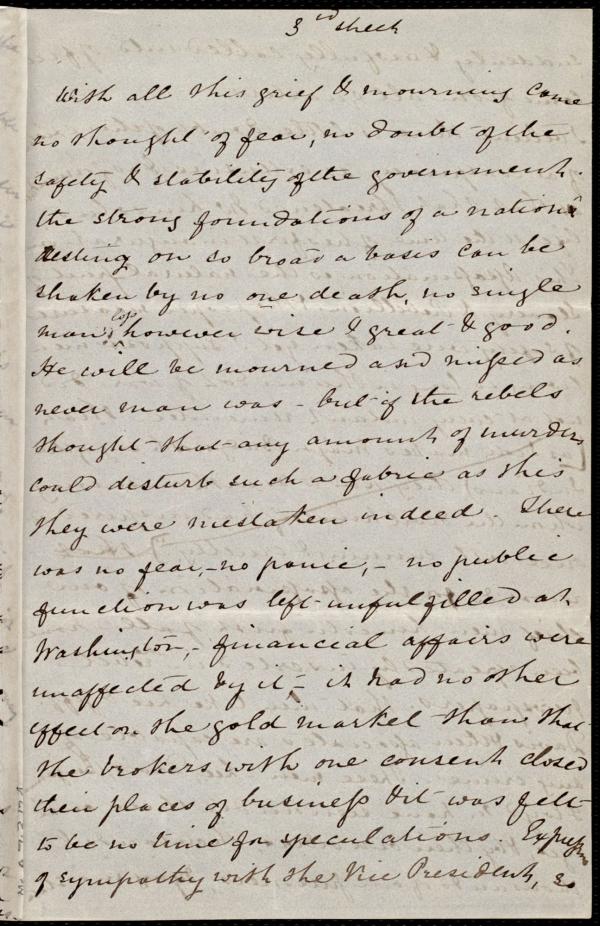 3rd sheet
With all this grief & mourning came
no thought of fear, no doubt of the
safety & stability of the government.
the strong foundations of a nation
resting on so broad a basis can be
shaken by no one death, no single
man's loss however wise & great & good.
He will be mourned and missed as
never man was - but if the rebels
thought that any amount of murder
could disturb such a fabric as this
they were mistaken indeed. There
was no fear, - no panic, - no public
function was left unfulfilled at
Washington, - financial affairs were
unaffected by it - it had no other
effect on the gold market than that
the brokers with one consent closed
their places of business & it was felt
to be no time for speculations. Expressions
of sympathy with the Vice President, so